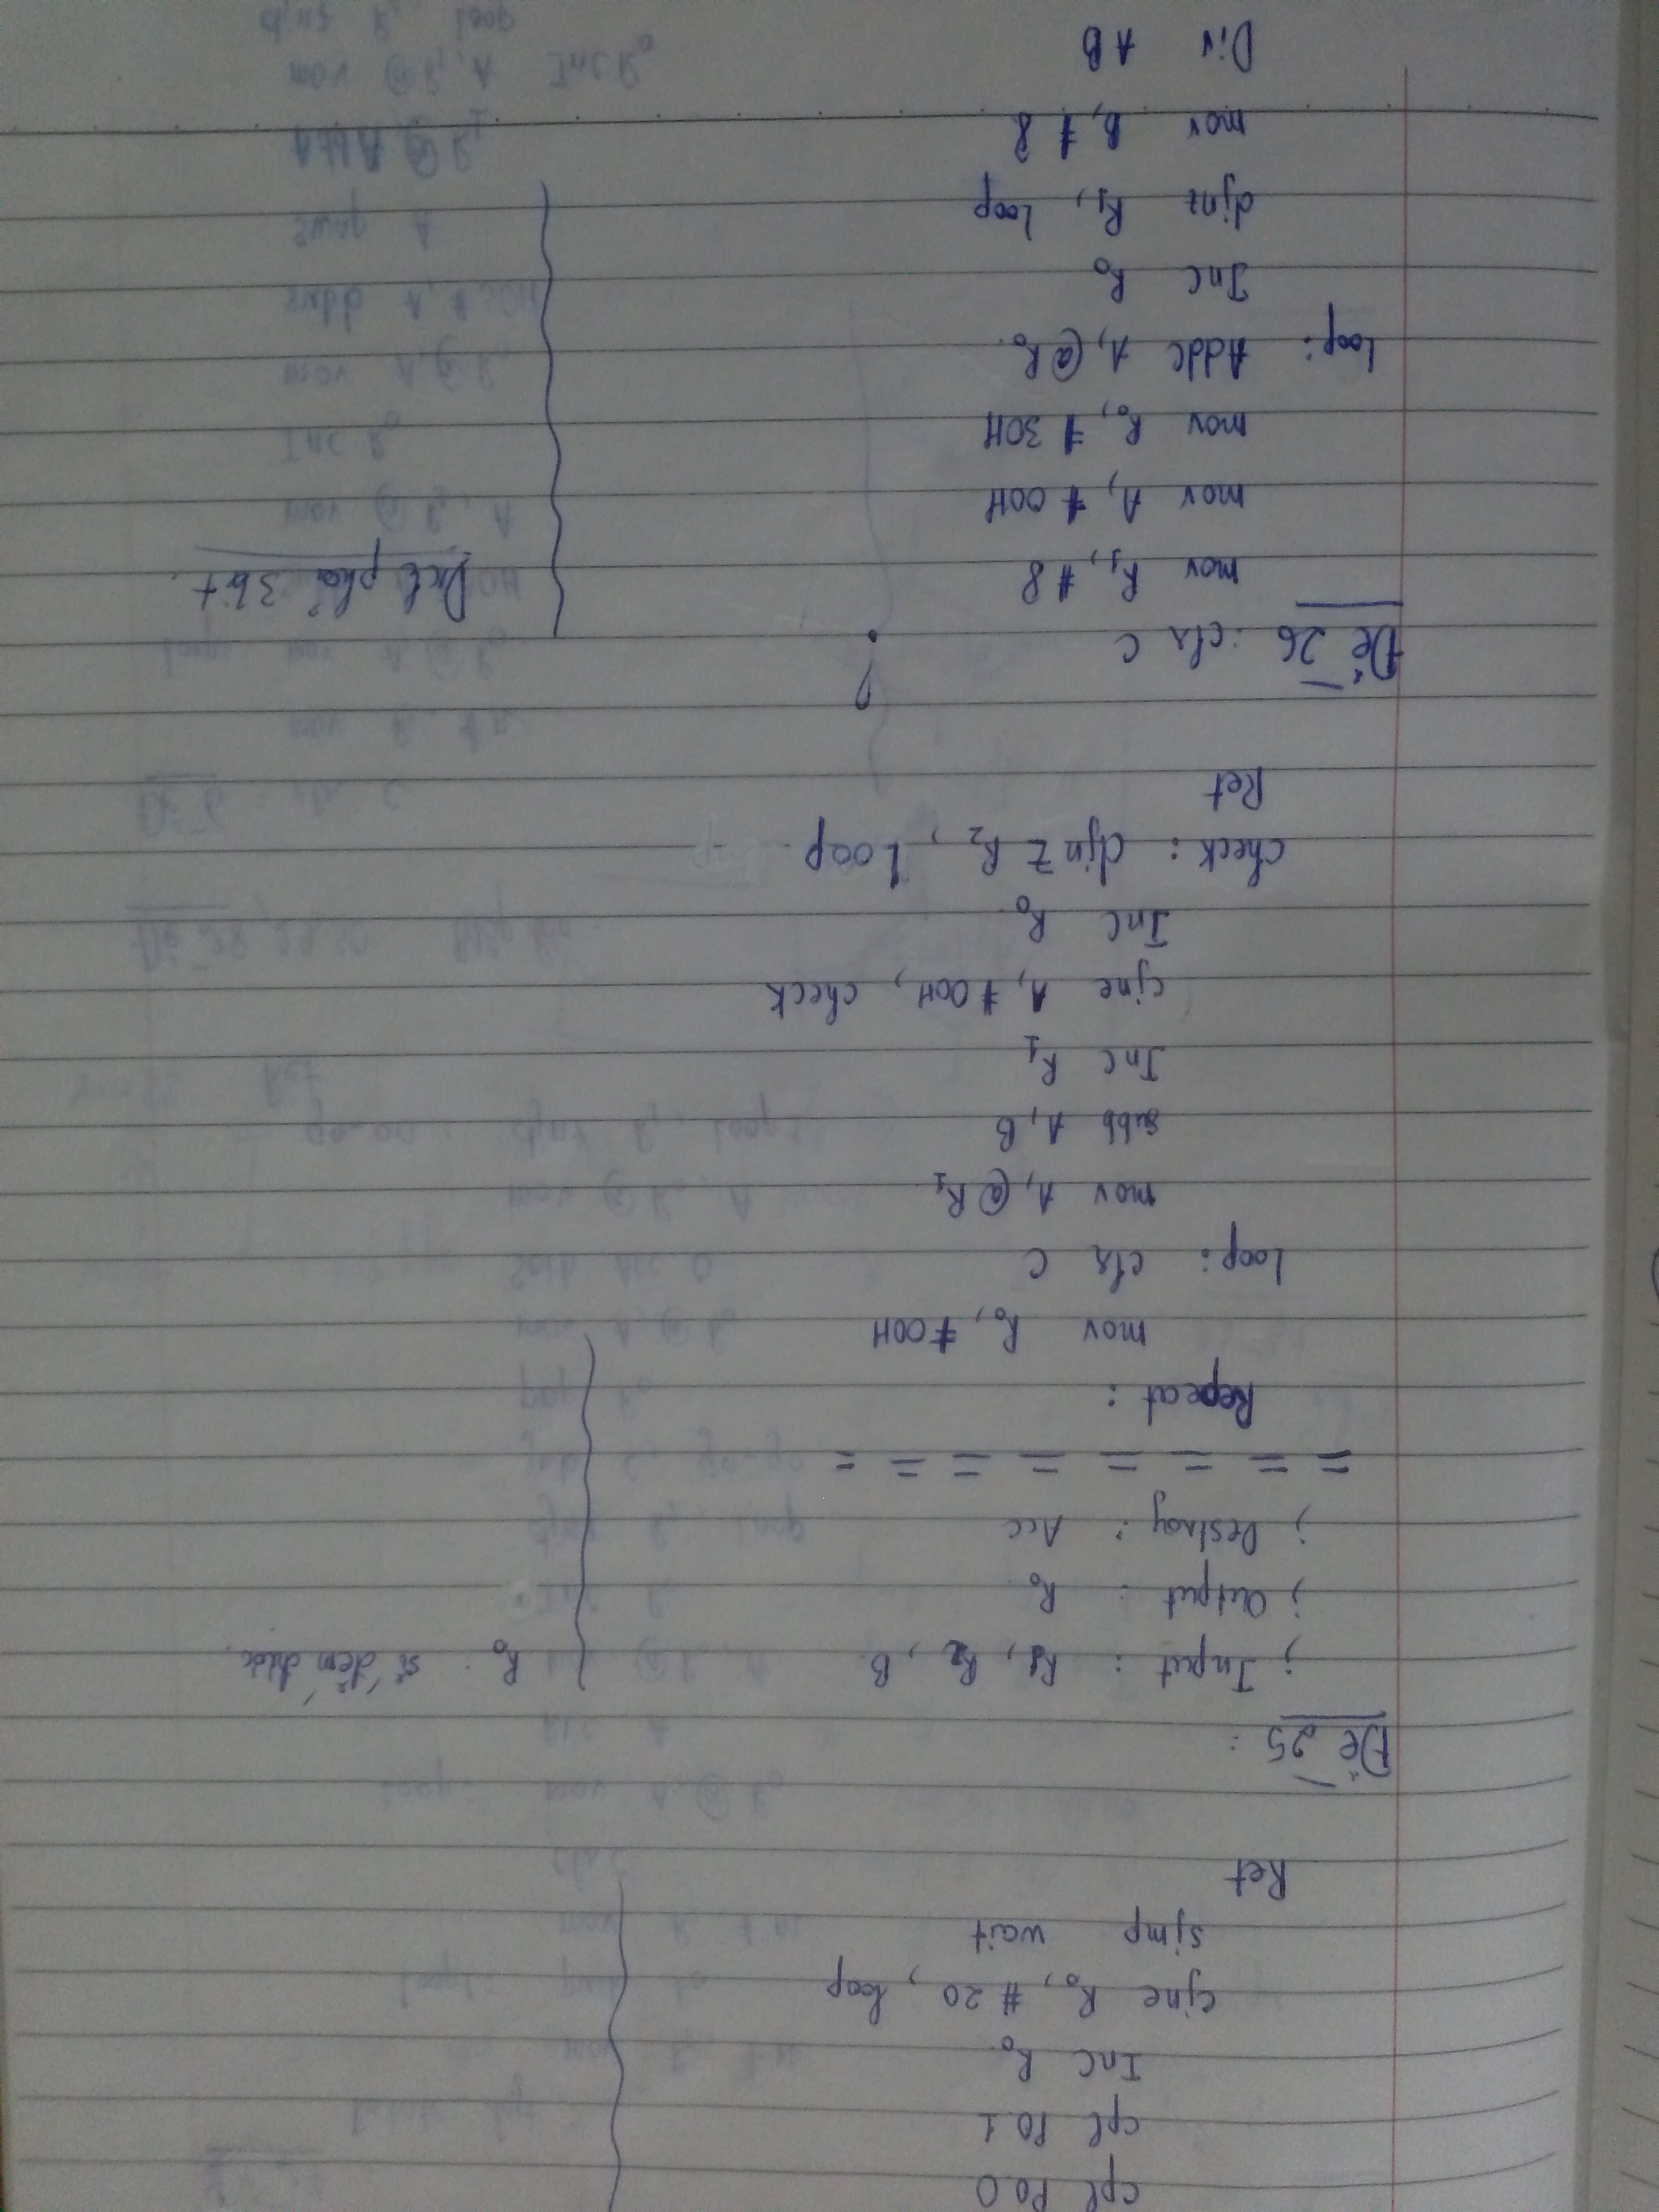 cpl P0.0
cpl P0.1
Inc R0
cjne R0, #20, loop
sjmp wait
Ret
Đề 25:
; Input: R1, R2, B
R0: số đếm được.
; Output: R0
; Destroy: Acc
= = = = = = = =
Repeat:
mov R0, #00H
Loop: clr C
mov A, @R1
subb A, B
Inc R1
cjne A, #00H, check
Inc R0
check: djnz R2, Loop
Ret
Đề 26: clr C ?
mov R1, #8
Dịch phải 3 bit.
mov A, #00H
mov R0, #30H
Loop: Addc A, @R0
Inc R0
djnz R1, Loop
mov B, #8
Div AB